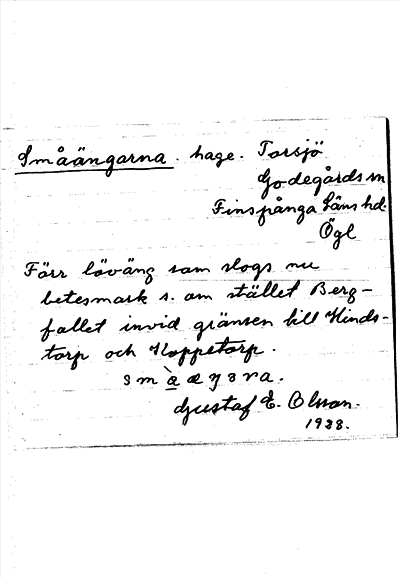 Småängarna. hage. Torsjö
Godegårds sn
Finspånga Läns hd.
Ögl
Förr löväng som slogs nu
betesmark s. om stället Berg-
fallet invid gränsen till Hinds-
torp och Koppetorp.
Gustaf E. Olsson.
1938.